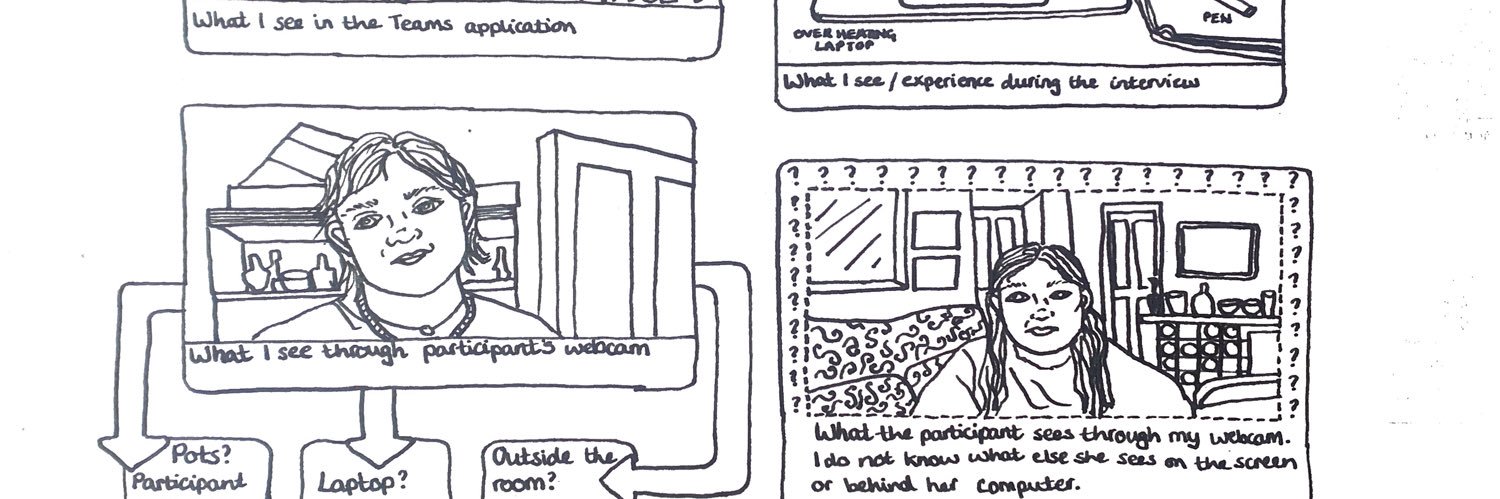 What I see in the Teams application
PEN
OVERHEATING
LAPTOP
What I see / experience during the interview
What I see through participant's webcam
Pots?
Participant
Laptop?
Outside the
room?
? ? ? ? ? ? ? ? ? ? ? ? ? ? ? ? ?
What the participant sees through my webcam.
I do not know what else she sees on the screen
or behind her computer.